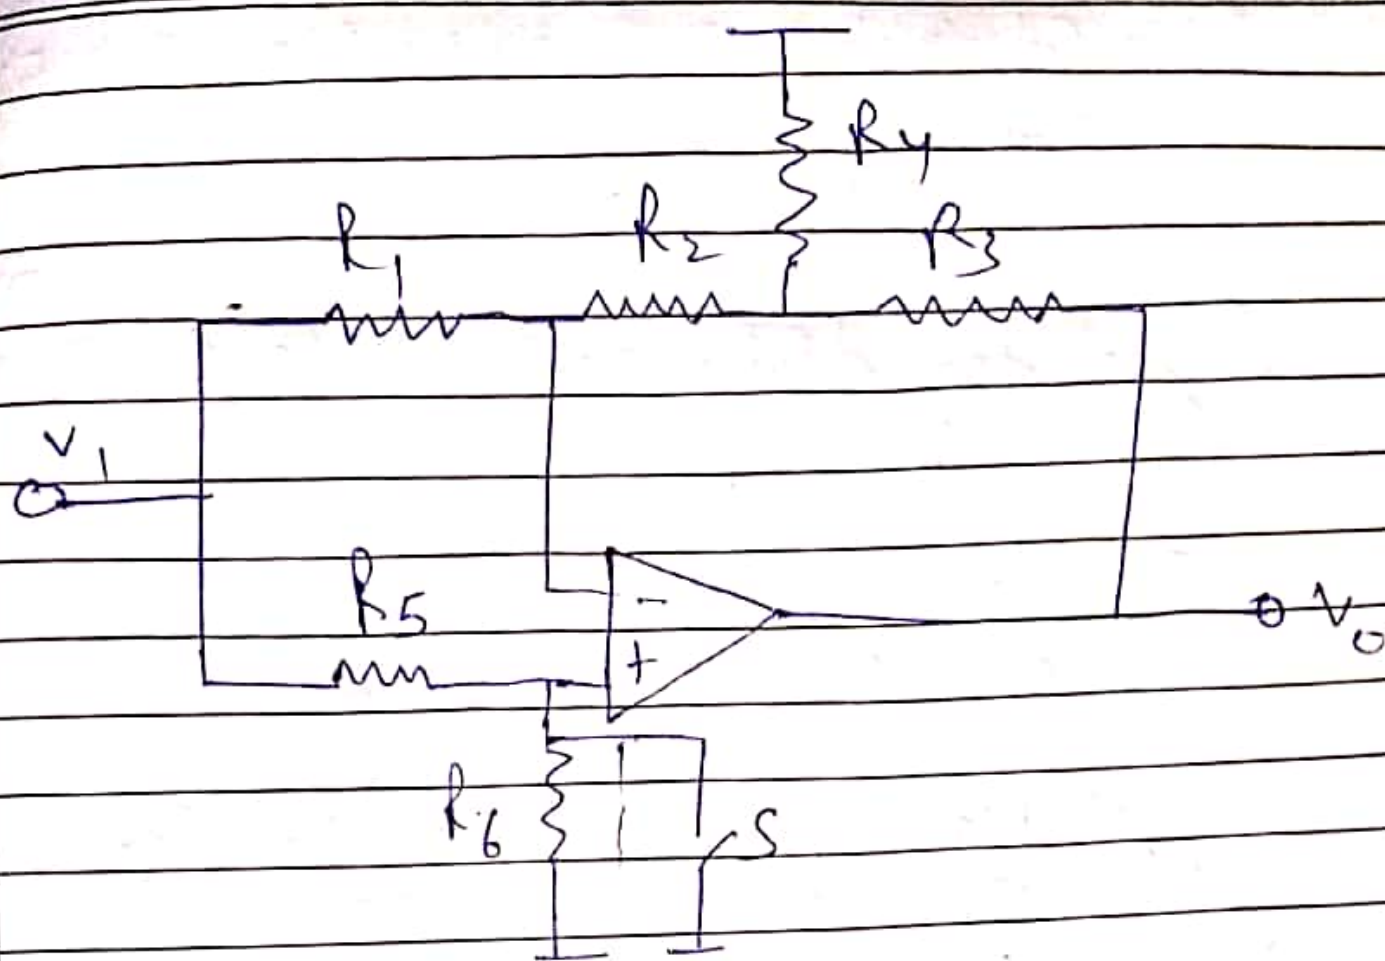 R4
R1 R2 R3
V1
R5
-
+
Vo
R6 S